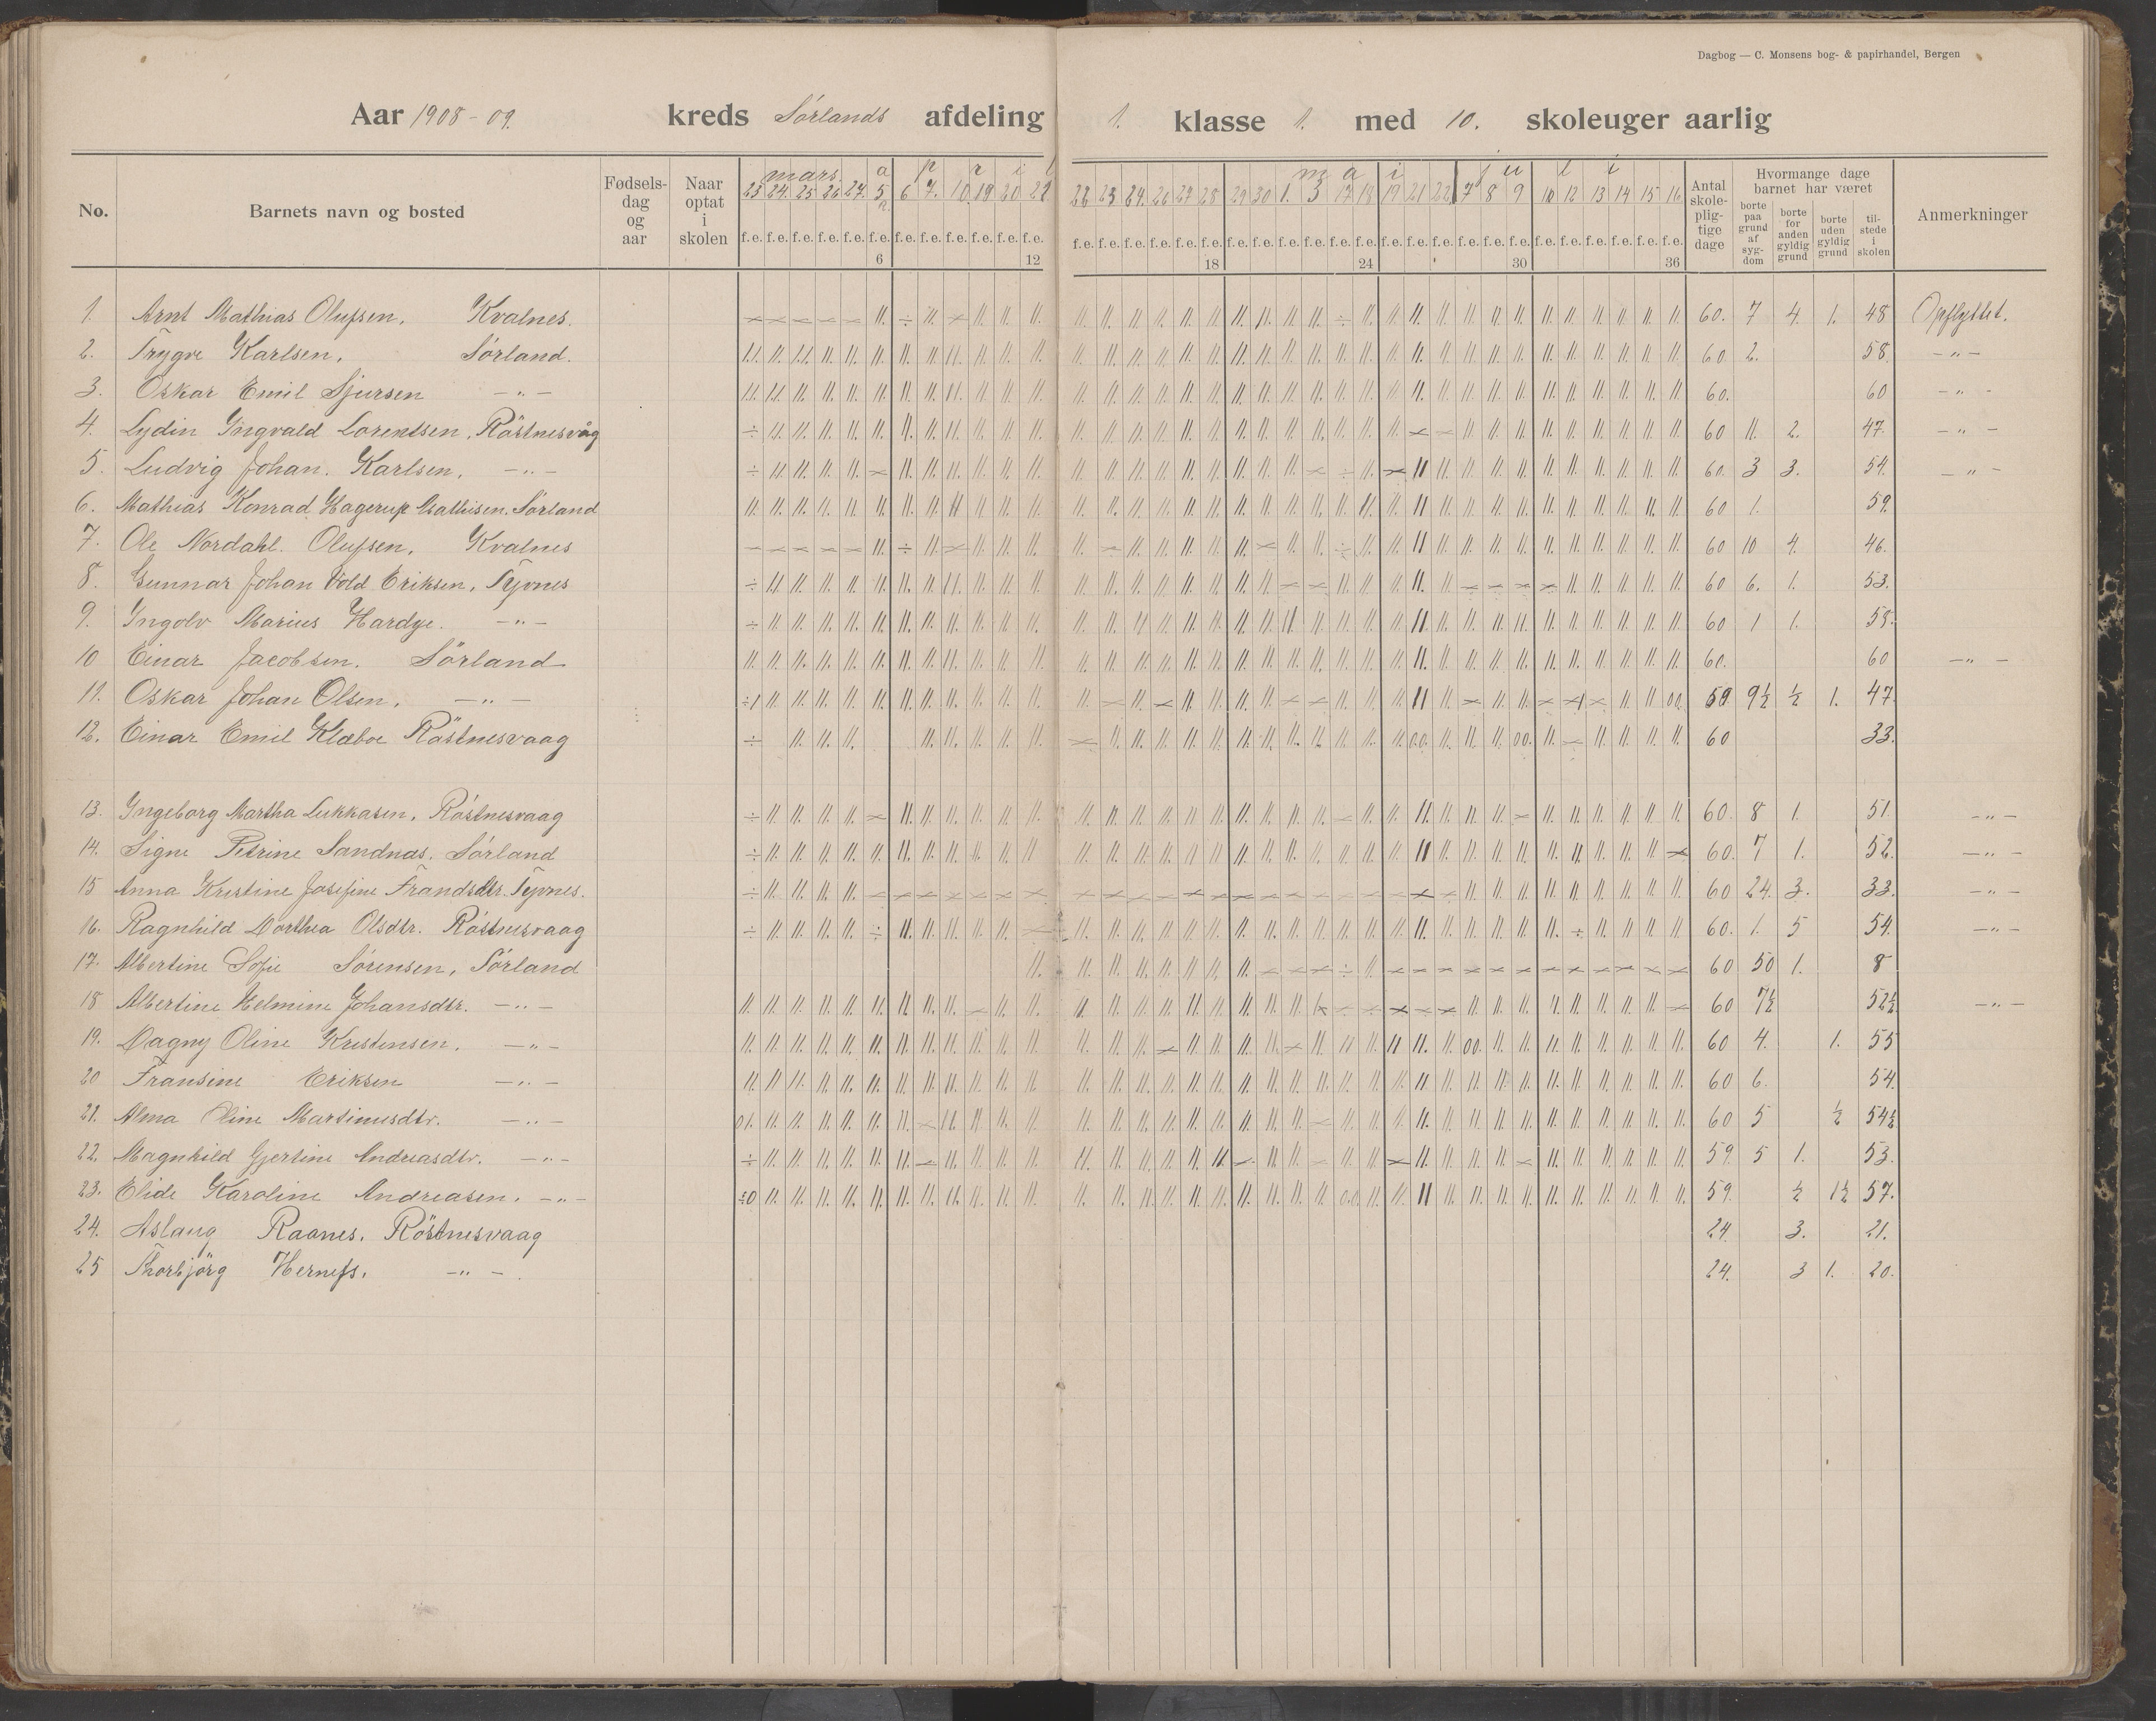 Dagbog — C. Monsens bog- & papirhandel, Bergen
Aar 1908-09. kreds Sörlands afdeling 1. klasse 1. med 10. skoleuger aarlig
No. Barnets navn og bosted Fødsels-dag og aar Naar optat i skolen mars. april mai juli Antal skole-plig-tige dage Hvormange dage barnet har været Anmerkninger
23 24. 25 26 27. 5 6 7. 10 19 20 21 22 23 24. 26 27 28 29 30 1. 3 17 18 19 21 22 7 8 9 10 12 13 14 15 16
borte paa grund af syg-dom borte for anden gyldig grund borte uden gyldig grund til-stede i skolen
f.e. f.e. f.e. f.e. f.e. f.e. f.e. f.e. f.e. f.e. f.e. f.e. f.e. f.e. f.e. f.e. f.e. f.e. f.e. f.e. f.e. f.e. f.e. f.e. f.e. f.e. f.e. f.e. f.e. f.e. f.e. f.e. f.e. f.e. f.e. f.e.
6 12 18 24 30 36
1. Arnt Mathias Olufsen. Kvalnes. 60. 7 4. 1. 48 Opflyttet.
2. Trygve Karlsen. Sörland. 60 2. 58. -"-
3. Oskar Emil Sjursen -"- 60. 60 -"-
4. Lydin Yngvald Lorentsen. Röstnesvåg 60 11. 2. 47. -"-
5. Ludvig Johan. Karlsen. -"- 60. 3 3. 54. -"-
6. Mathias Konrad Hagerup Mathisen. Sörland 60 1. 59.
7. Ole Nordahl. Olufsen. Kvalnes 60 10 4. 46.
8. Gunnar Johan Vold Eriksen. Tyvnes 60 6. 1. 53.
9. Yngolv Marius Hardye. -"- 60 1 1. 58.
10 Einar Jacobsen. Sörland 60. 60 -"-
11. Oskar Johan Olsen. -"- 59 9½ ½ 1. 47.
12. Einar Emil Klæboe Röstnesvaag 60 33.
13. Yngeborg Martha Lukkasen. Röstnesvaag 60. 8 1. 51. -"-
14. Signe Petrine Sandnæs. Sörland 60. 7 1. 52. -"-
15 Anna Kristine Josefine Frandsdtr. Tyvnes. 60 24. 3. 33. -"-
16. Ragnhild Dorthea Olsdtr. Röstnesvaag 60. 1. 5 54. -"-
17. Albertine Sofie Sörensen, Sörland 60 50 1. 8
18 Albertine Helmine Johansdtr. -"- 60 7½ 52½ -"-
19. Dagny Oline Kristensen. -"- 60 4. 1. 55
20 Fransine Eriksen -"- 60 6. 54.
21. Alma Oline Martinusdtr. -"- 60 5 ½ 54½
22. Magnhild Gjertine Andreasdtr. -"- 59. 5 1. 53.
23. Elide Karoline Andreasen. -"- 59. ½ 1½ 57.
24. Aslaug Raanes. Röstnesvaag 24. 3. 21.
25 Thorbjörg Hernefs. -"- 24. 3 1. 20.